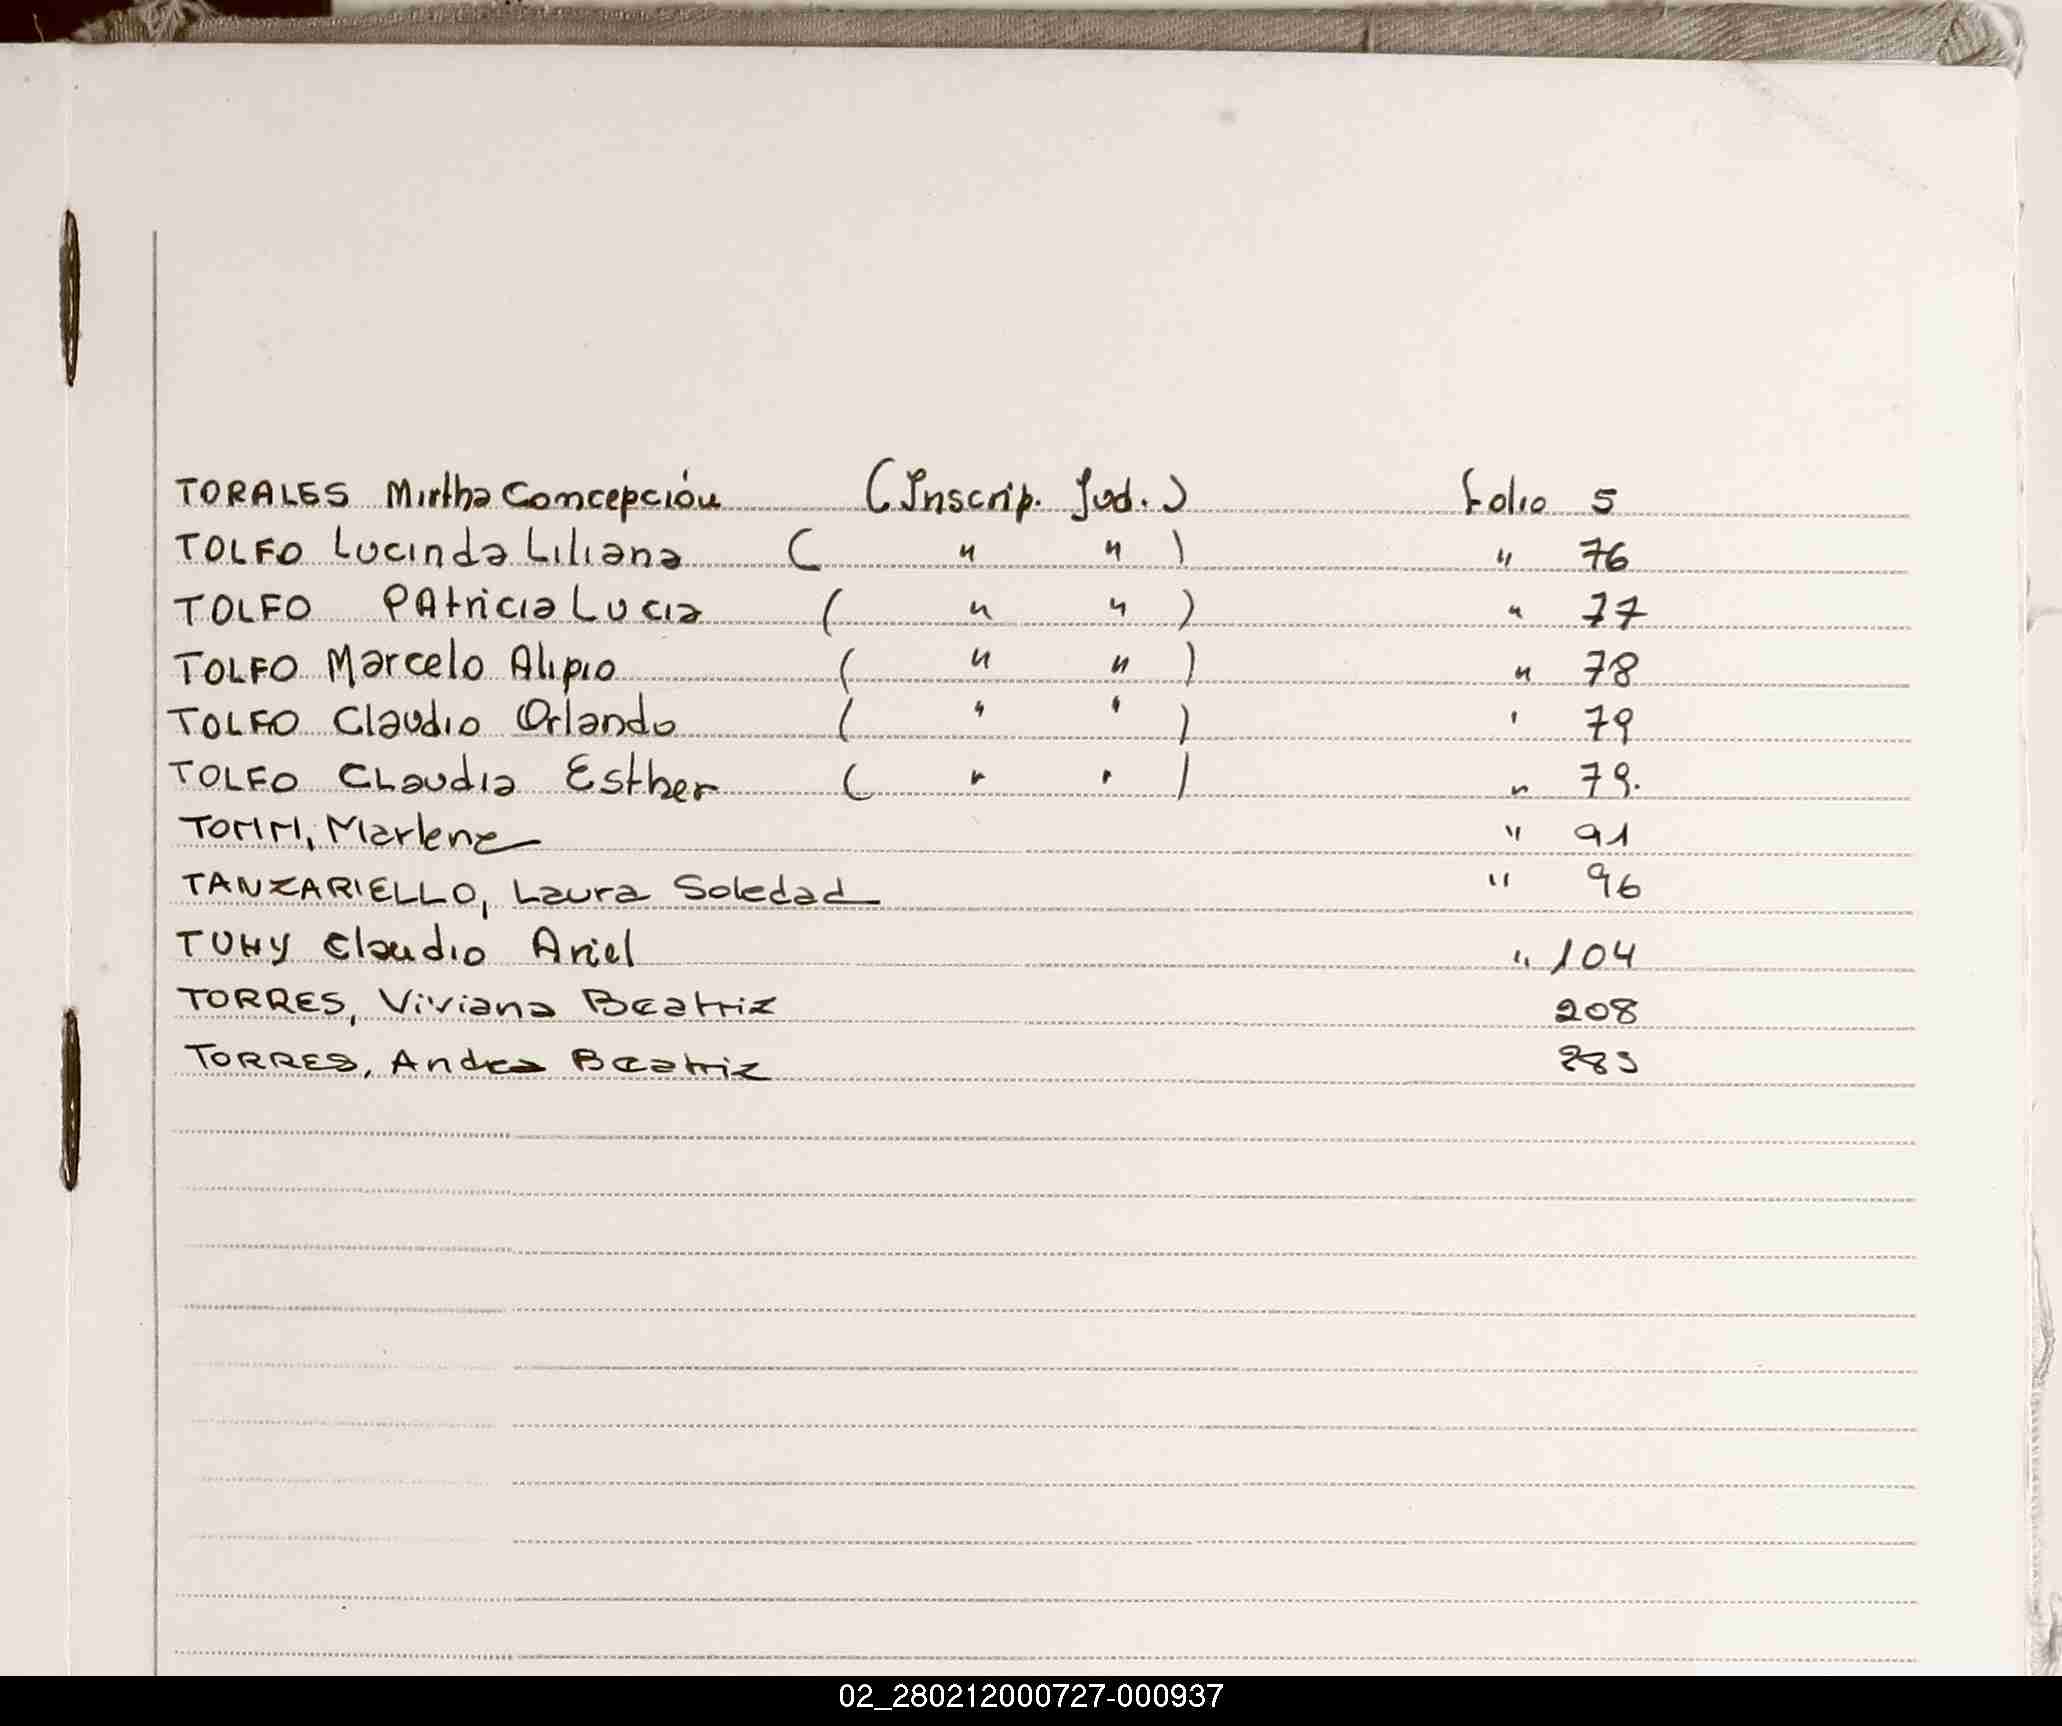 TORALES Mirtha Concepción (Inscrip. Jud.) folio 5
TOLFO Lucinda Liliana ( " " ) " 76
TOLFO PAtricia Lucia ( " " ) " 77
TOLFO Marcelo Alipio ( " " ) " 78
TOLFO Claudio Orlando ( " " ) " 79
TOLFO CLaudia Esther ( " " ) " 79.
TOMM, Marlene " 91
TANZARIELLO, Laura Soledad " 96
TUHY Claudio Ariel " 104
TORRES, Viviana Beatriz 208
TORRES, Andrea Beatriz 283
02_280212000727-000937